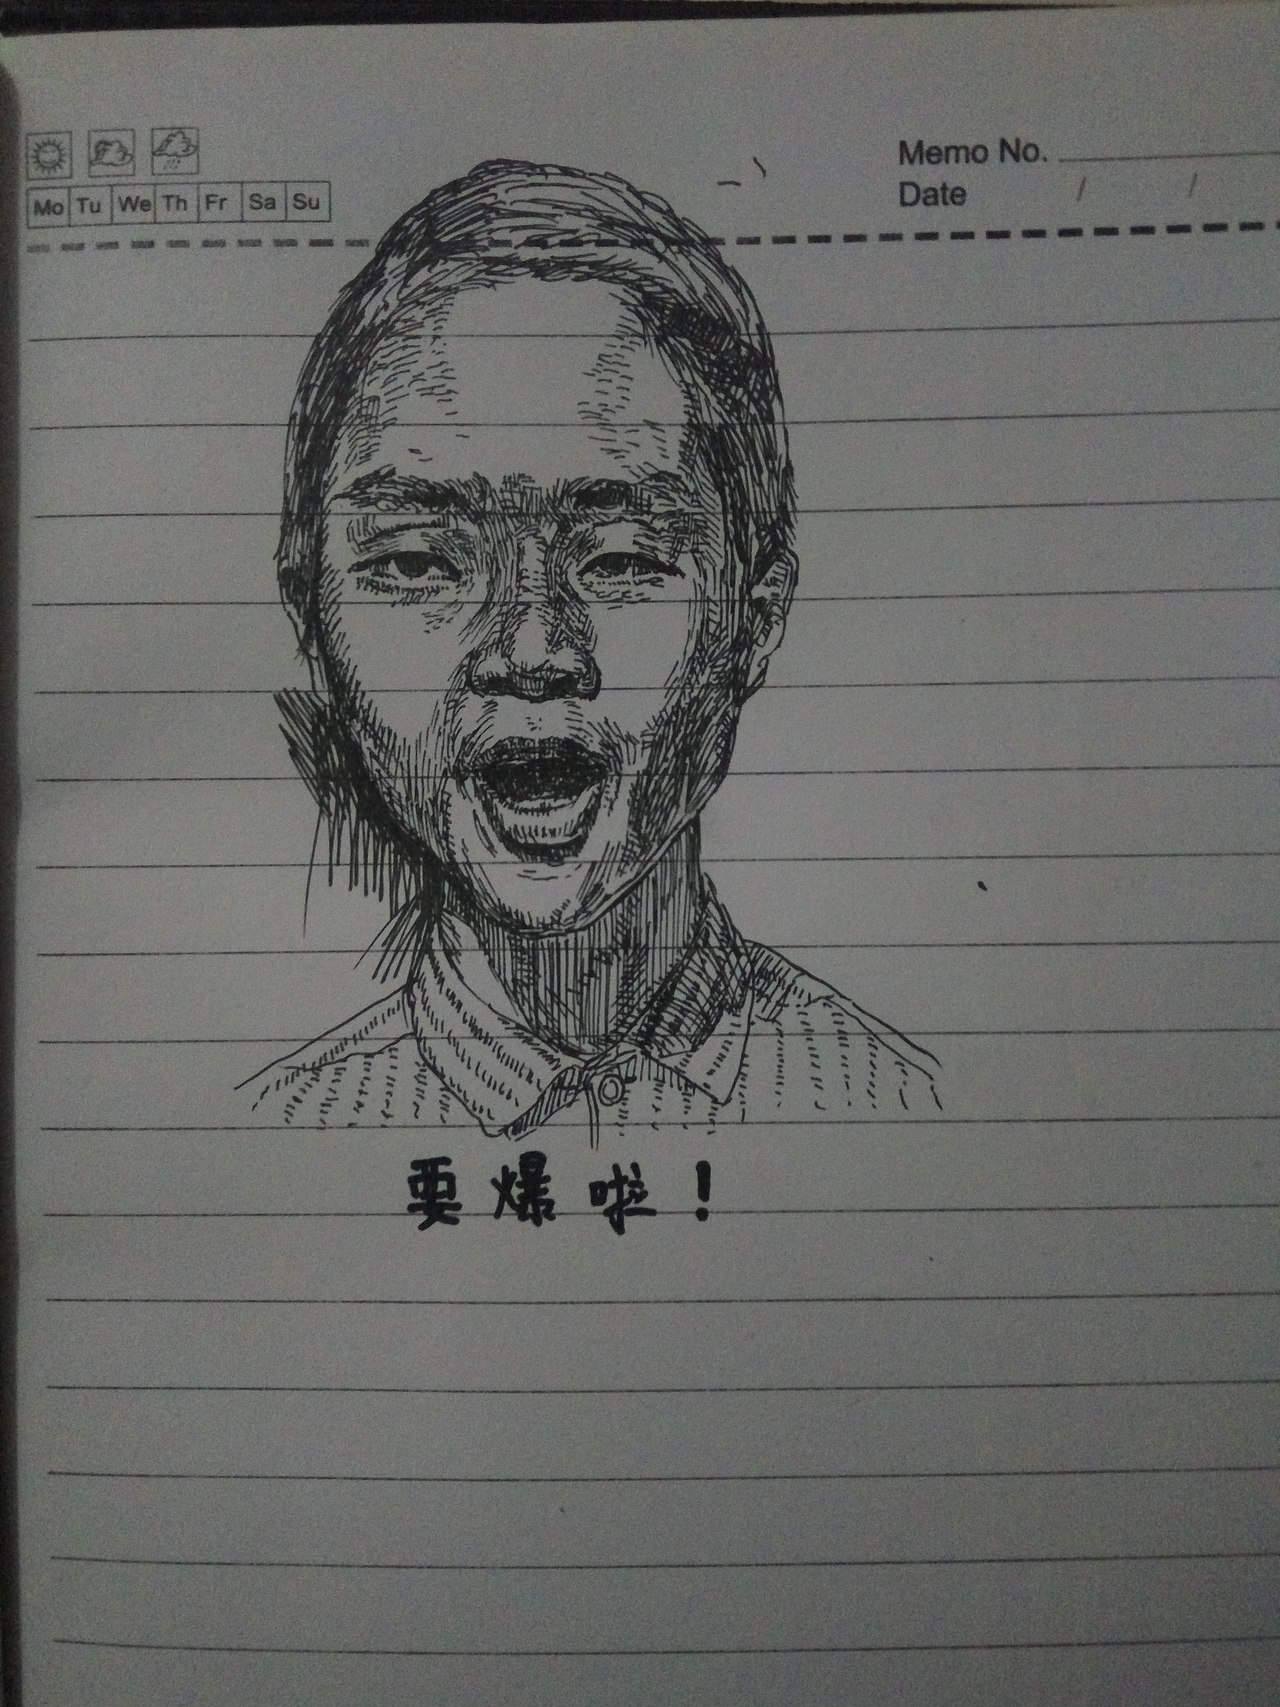 Memo No.
Mo Tu We Th Fr Sa Su
Date / /
要爆啦！